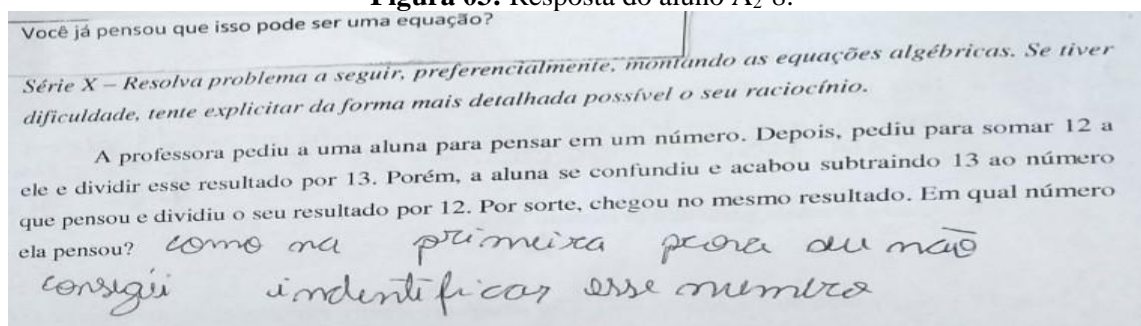 Figura 05: Resposta do aluno A₂ 8.
Você já pensou que isso pode ser uma equação?
Série X – Resolva problema a seguir, preferencialmente, montando as equações algébricas. Se tiver
dificuldade, tente explicitar da forma mais detalhada possível o seu raciocínio.
A professora pediu a uma aluna para pensar em um número. Depois, pediu para somar 12 a
ele e dividir esse resultado por 13. Porém, a aluna se confundiu e acabou subtraindo 13 ao número
que pensou e dividiu o seu resultado por 12. Por sorte, chegou no mesmo resultado. Em qual número
ela pensou? como na primeira prova eu não
consigui indentificar esse numero